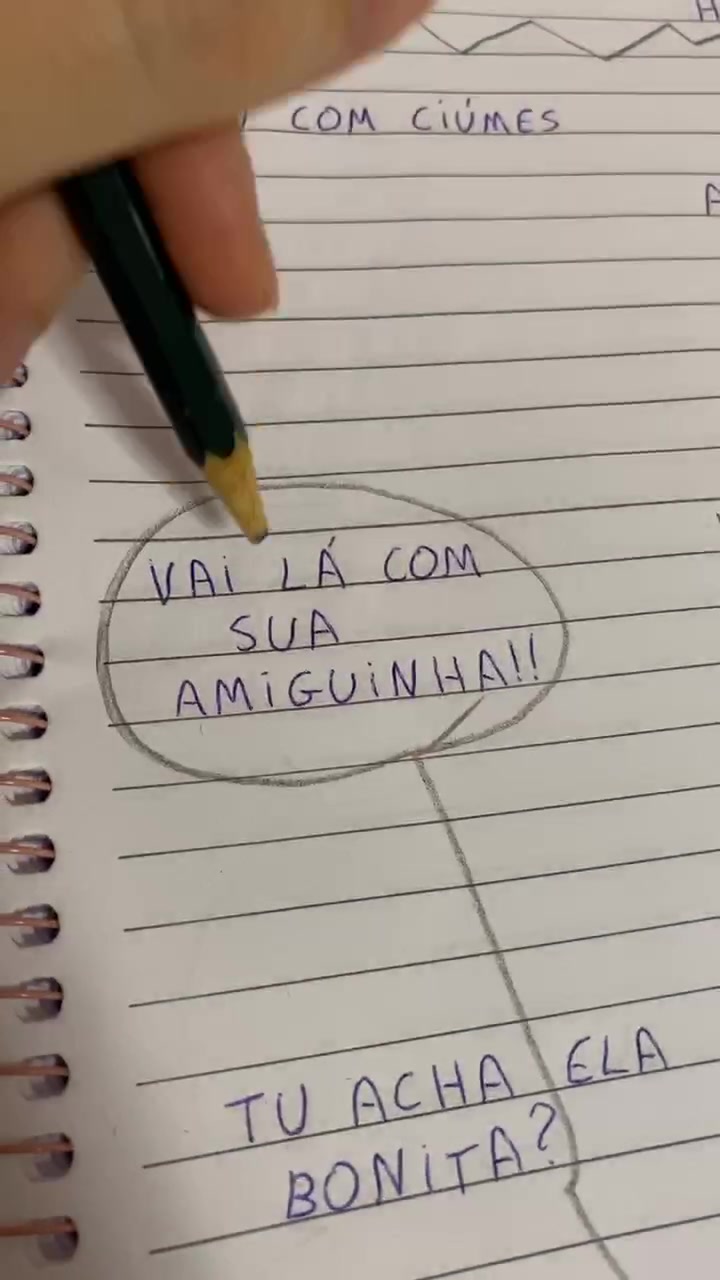 COM CIÚMES
VAI LÁ COM
SUA
AMIGUINHA!!
TU ACHA ELA
BONITA?